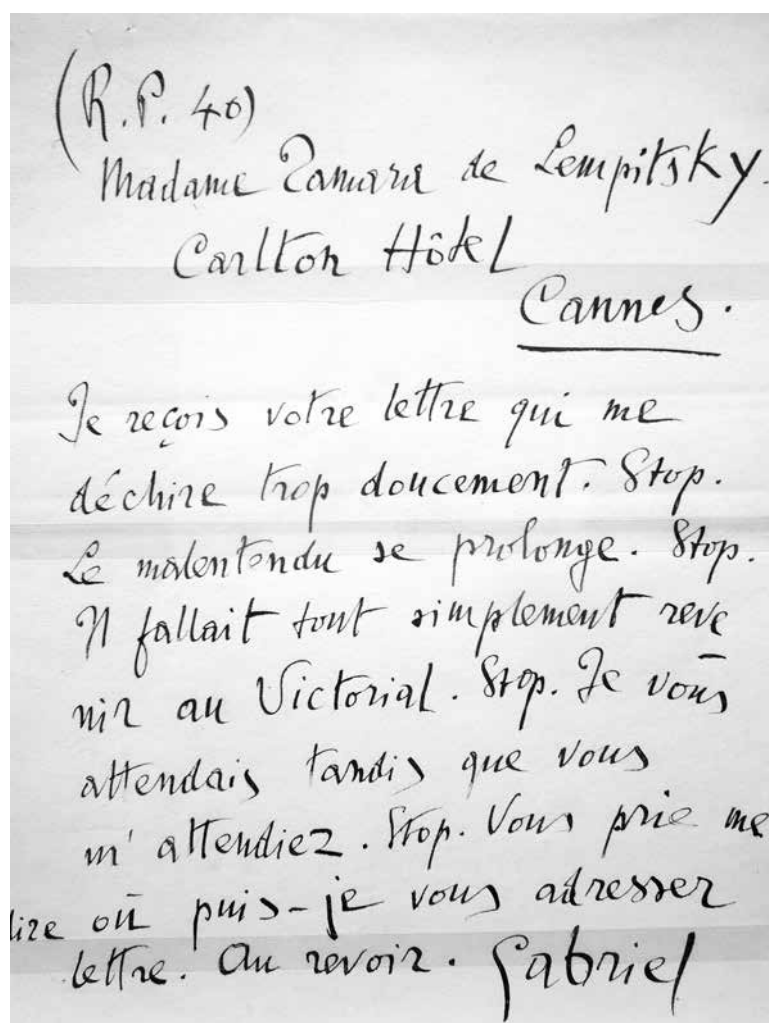 (R.P. 40)
Madame Tamara de Lempitsky.
Carlton Hôtel
Cannes.
Je reçois votre lettre qui me
déchire trop doucement. Stop.
Le malentendu se prolonge. Stop.
Il fallait tout simplement reve
nir au Victorial. Stop. Je vous
attendais tandis que vous
m'attendiez. Stop. Vous prie me
dire où puis-je vous adresser
lettre. Au revoir. Gabriel